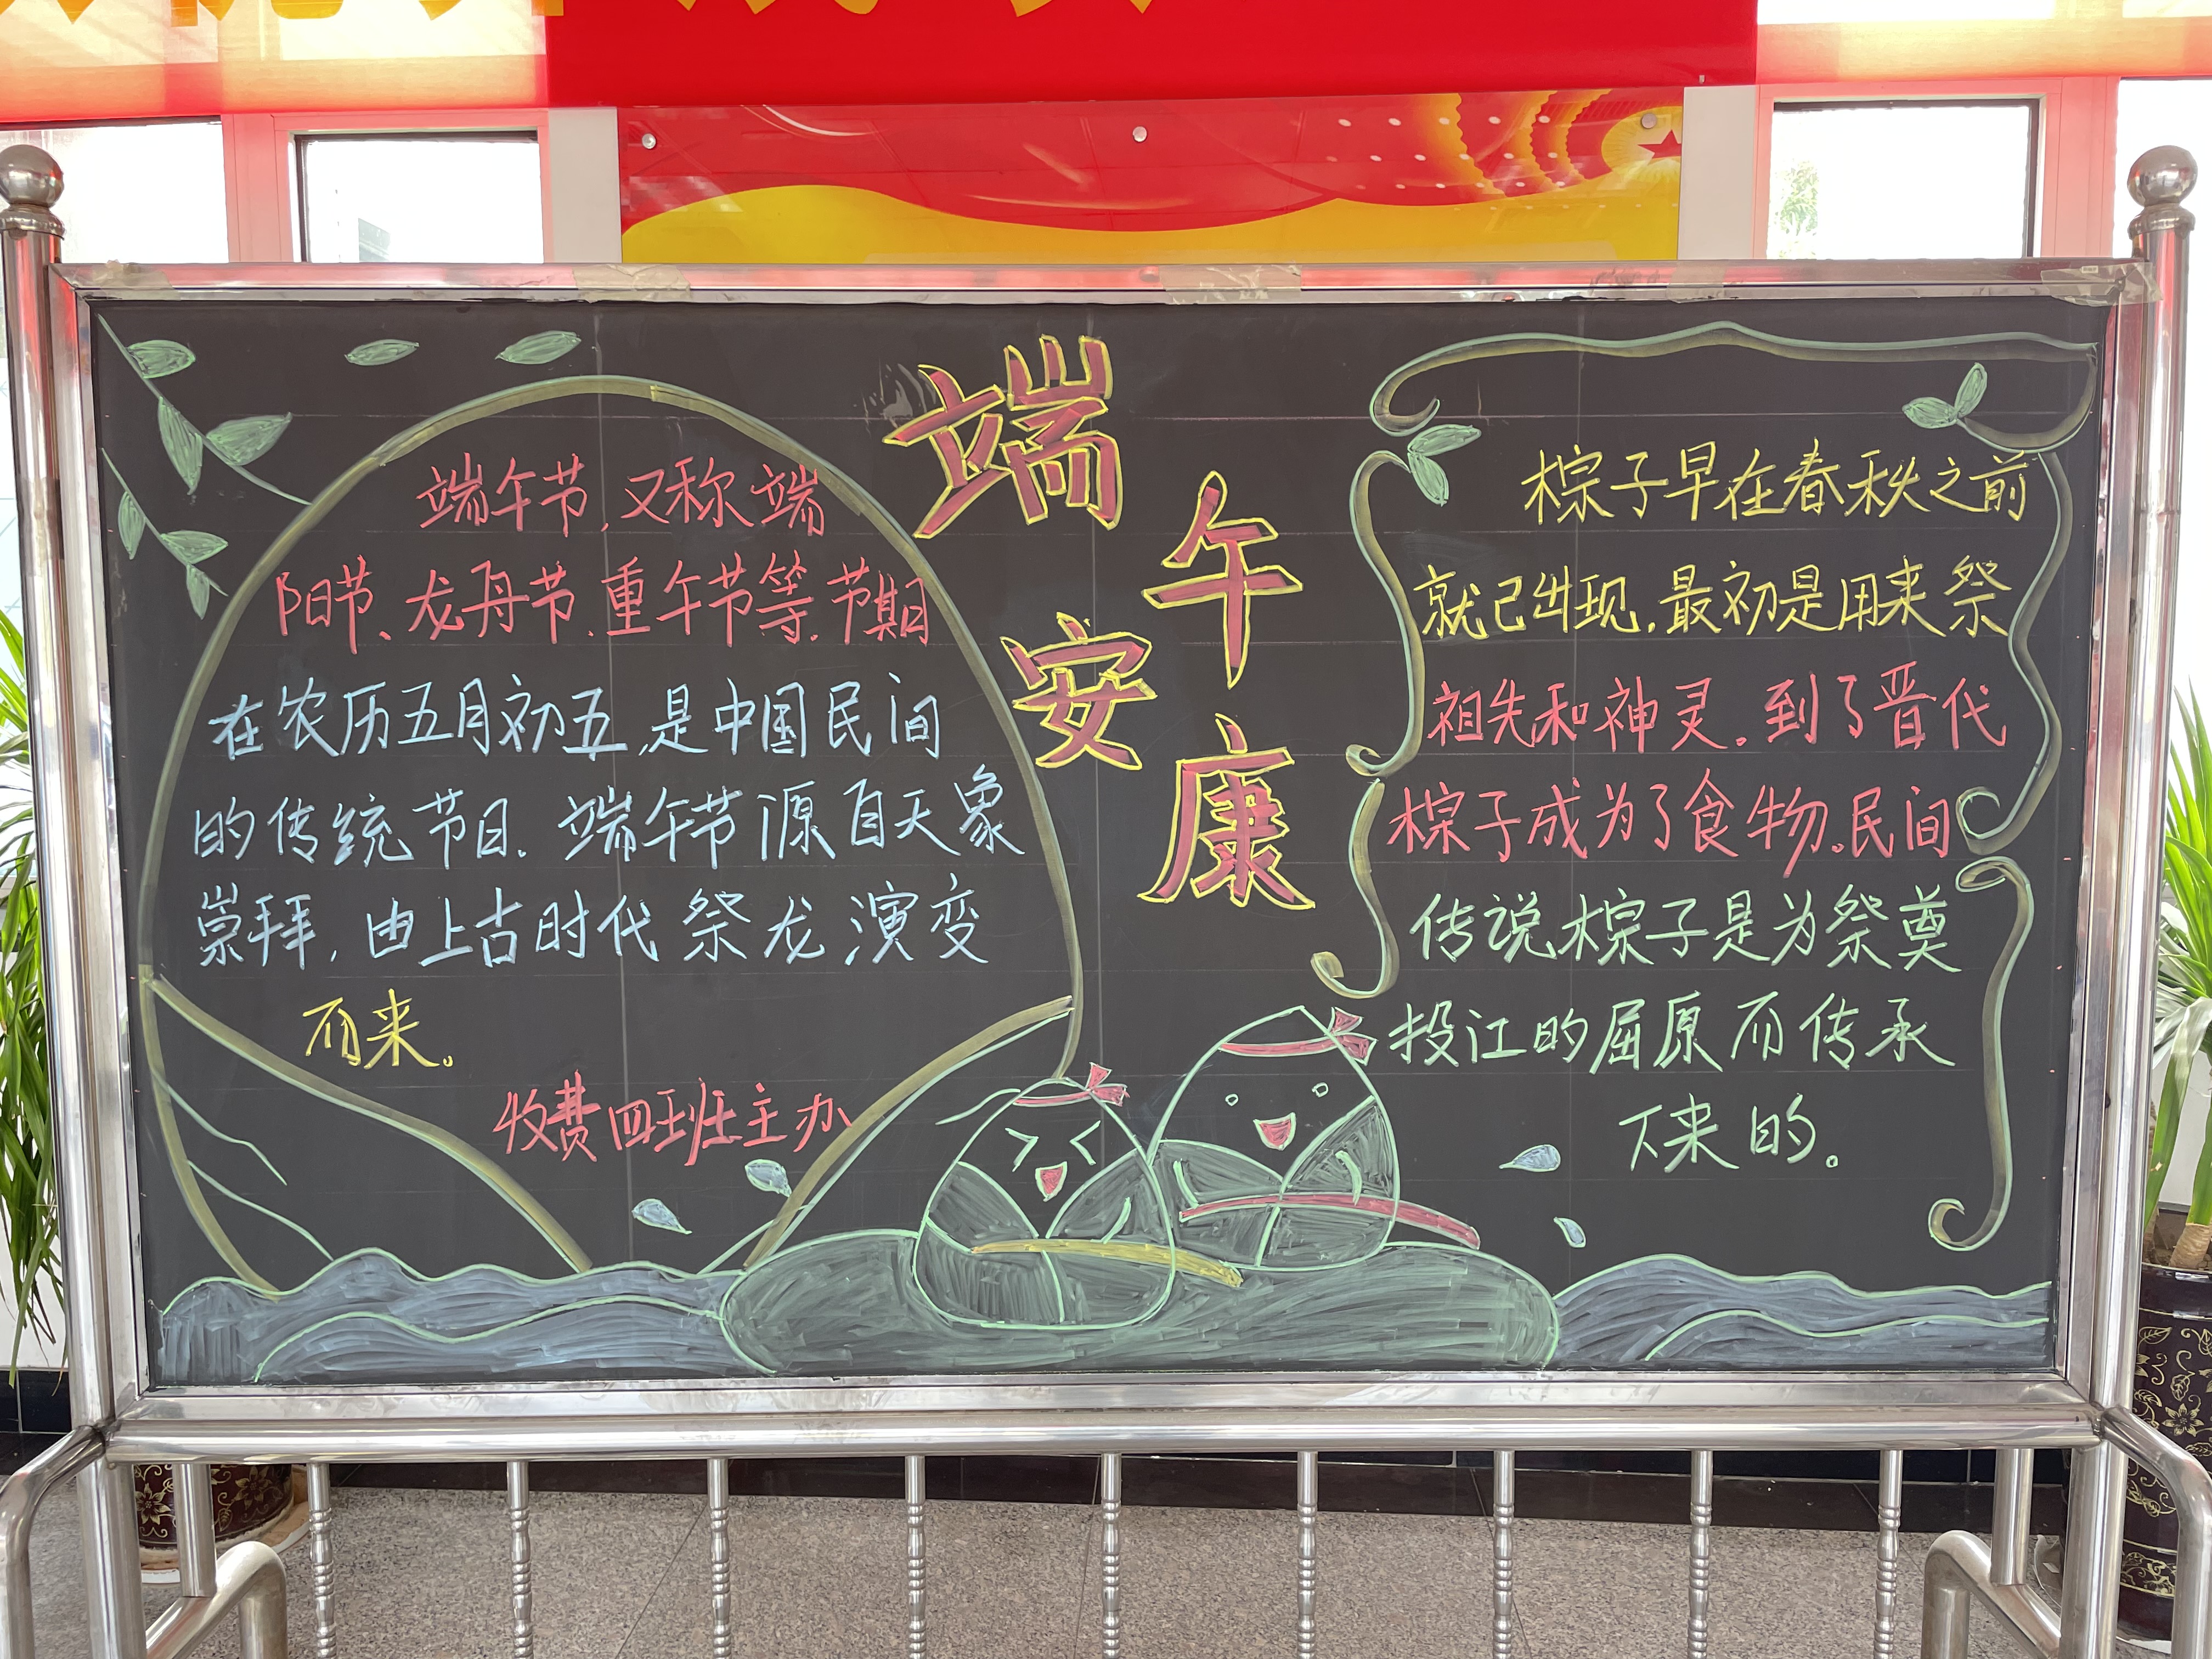 端午节,又称端
阳节、龙舟节、重午节等、节期
在农历五月初五,是中国民间
的传统节日.端午节源自天象
崇拜,由上古时代祭龙演变
而来。
收费四班主办
端
午
安
康
棕子早在春秋之前
就已出现,最初是用来祭
祖先和神灵。到了晋代
棕子成为了食物。民间
传说棕子是为祭奠
投江的屈原而传承
下来的。